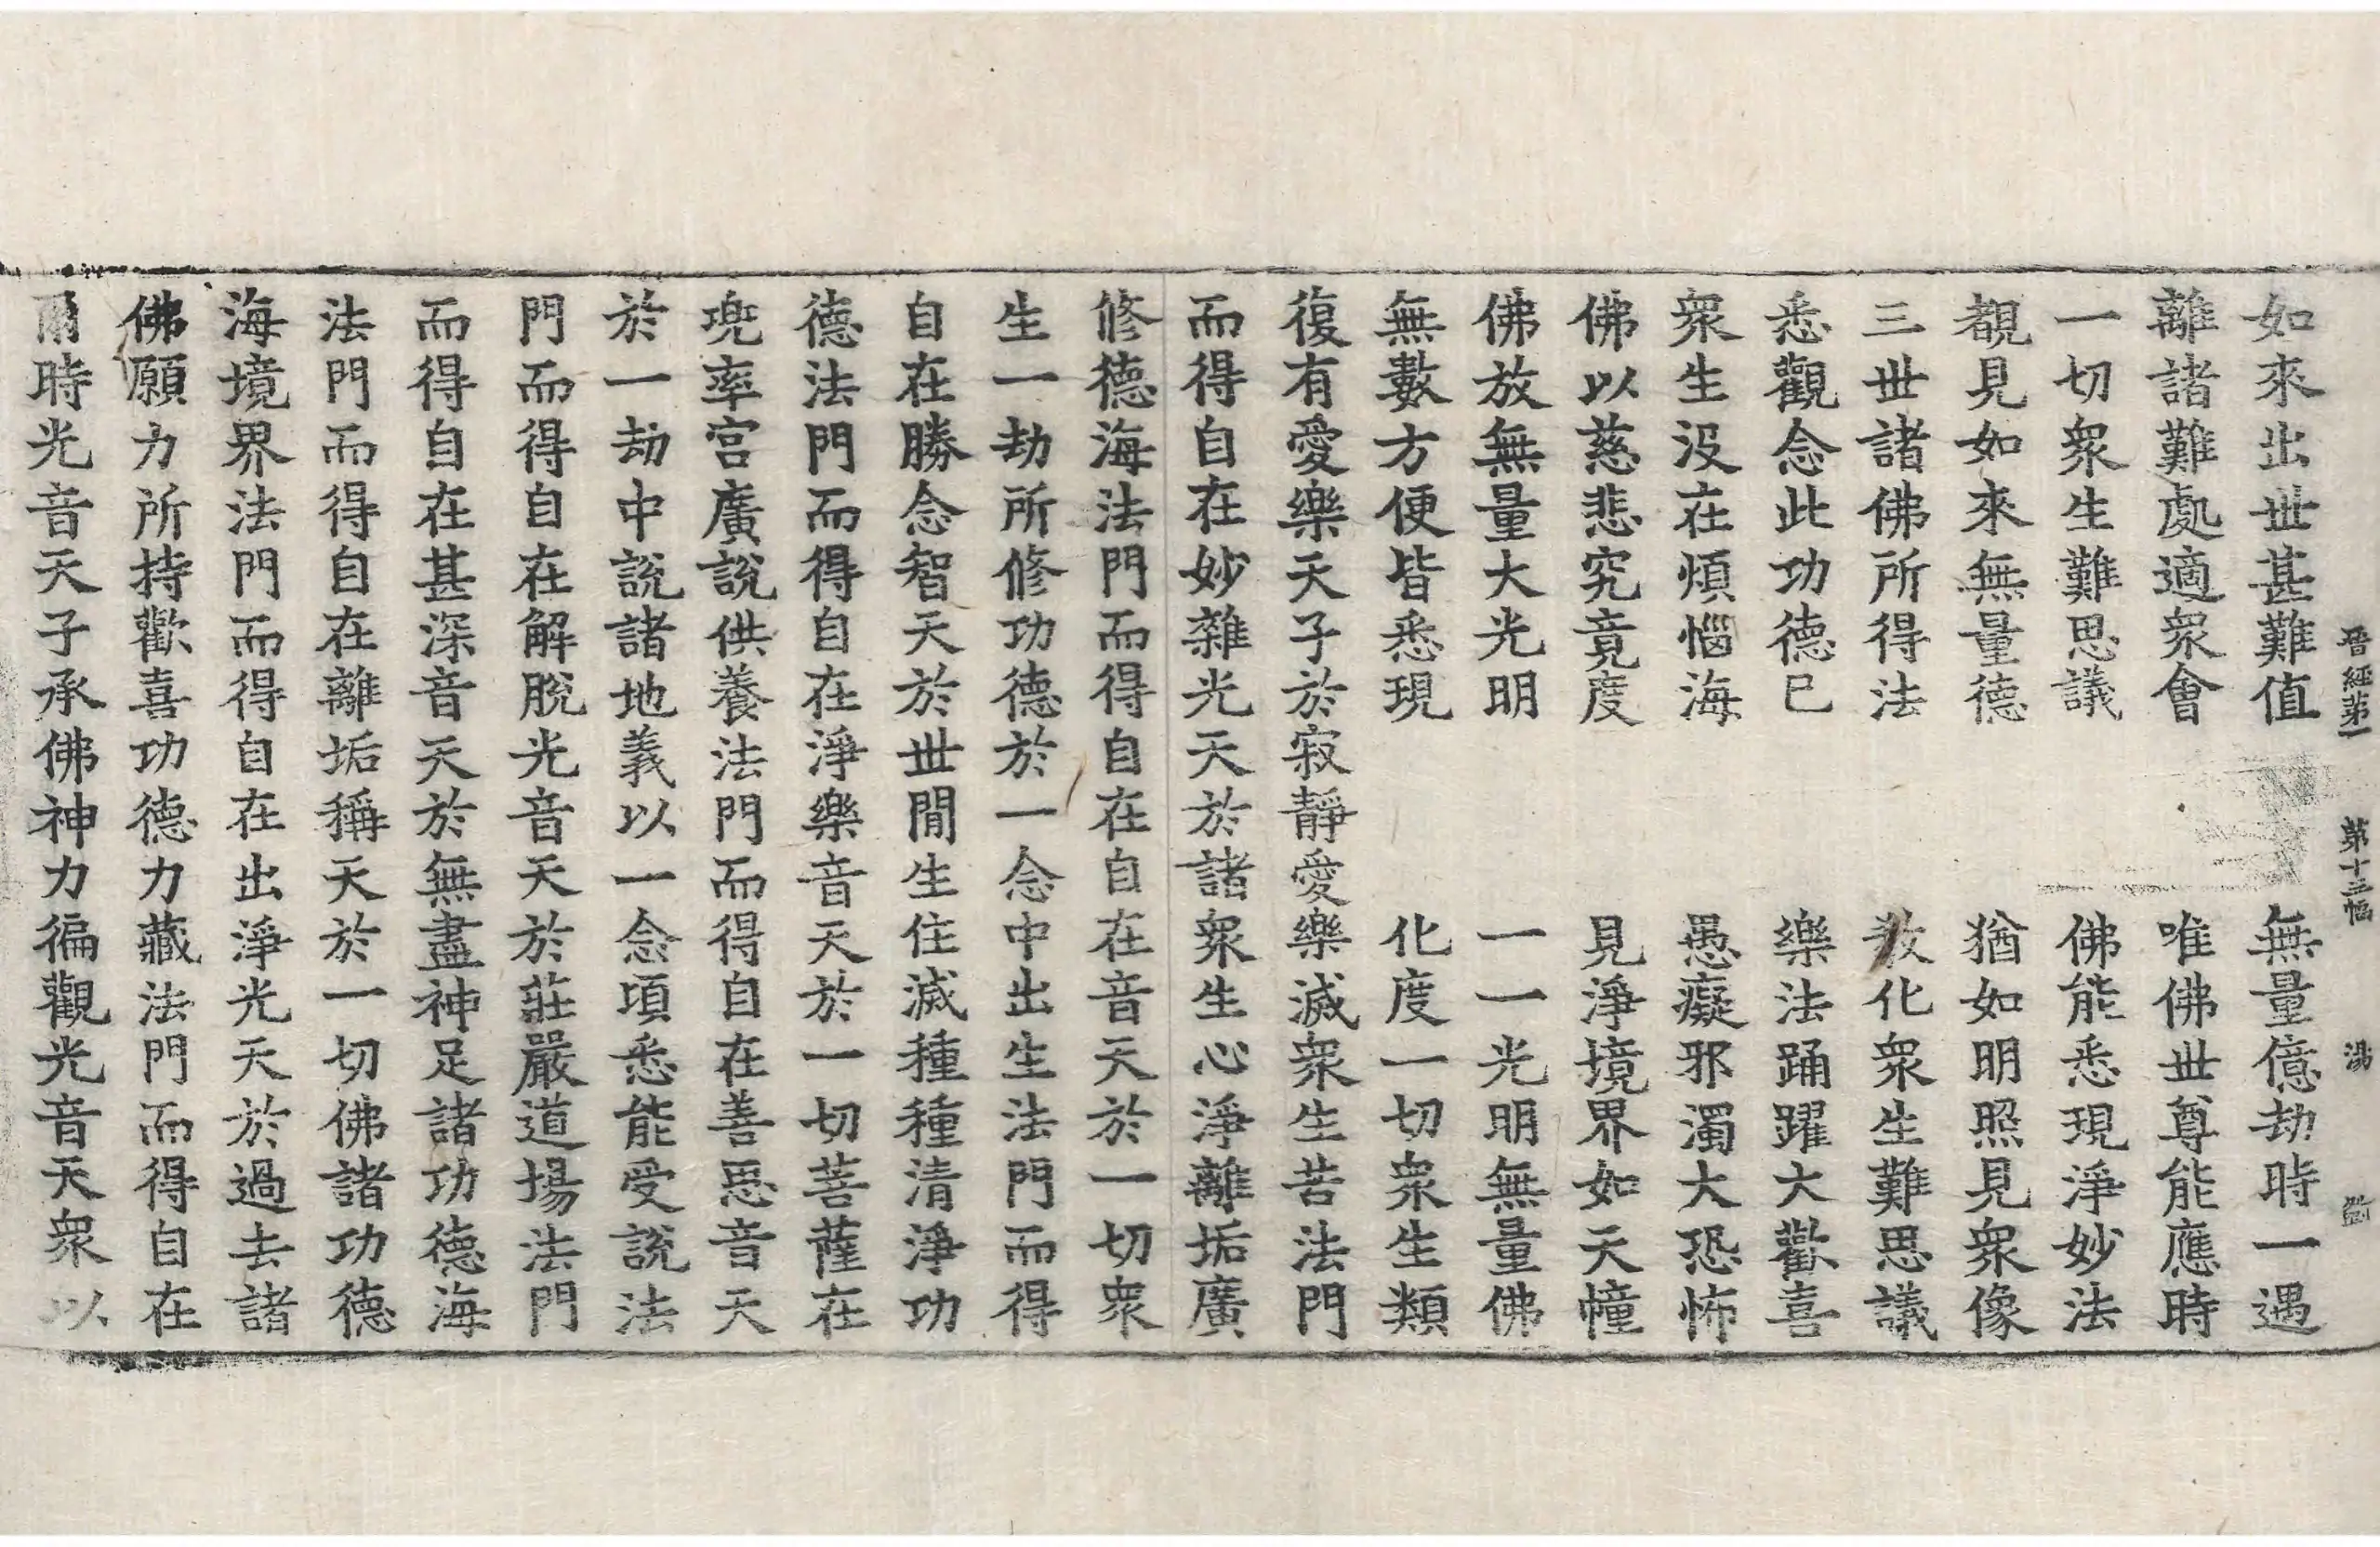 晉經第一 第十三幅 湯
如來出世甚難值 無量億劫時一遇
離諸難處適衆會 唯佛世尊能應時
一切衆生難思議 佛能悉現淨妙法
覩見如來無量德 猶如明照見衆像
三世諸佛所得法 教化衆生難思議
悉觀念此功德已 樂法踊躍大歡喜
衆生没在煩惱海 愚癡邪濁大恐怖
佛以慈悲究竟度 見淨境界如天幢
佛放無量大光明 一一光明無量佛
無數方便皆悉現 化度一切衆生類
復有愛樂天子於寂靜愛樂滅衆生苦法門
而得自在妙雜光天於諸衆生心淨離垢廣
修德海法門而得自在自在音天於一切衆
生一劫所修功德於一念中出生法門而得
自在勝念智天於世閒生住滅種種清淨功
德法門而得自在淨樂音天於一切菩薩在
兜率宮廣說供養法門而得自在善惡音天
於一劫中說諸地義以一念項悉能受說法
門而得自在解脫光音天於莊嚴道場法門
而得自在甚深音天於無盡神足諸功德海
法門而得自在離垢稱天於一切佛諸功德
海境界法門而得自在出淨光天於過去諸
佛願力所持歡喜功德力藏法門而得自在
爾時光音天子承佛神力徧觀光音天衆以